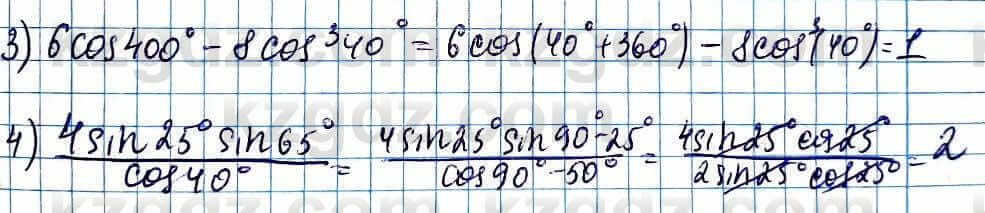 3) 6cos400° - 8cos³40° = 6cos(40°+360°) - 8cos³(40°) = 1
4) 4sin25°sin65° / cos40° = 4sin25°sin90°-25° / cos90°-50° = 4sin25°cos25° / 2sin25°cos25° = 2